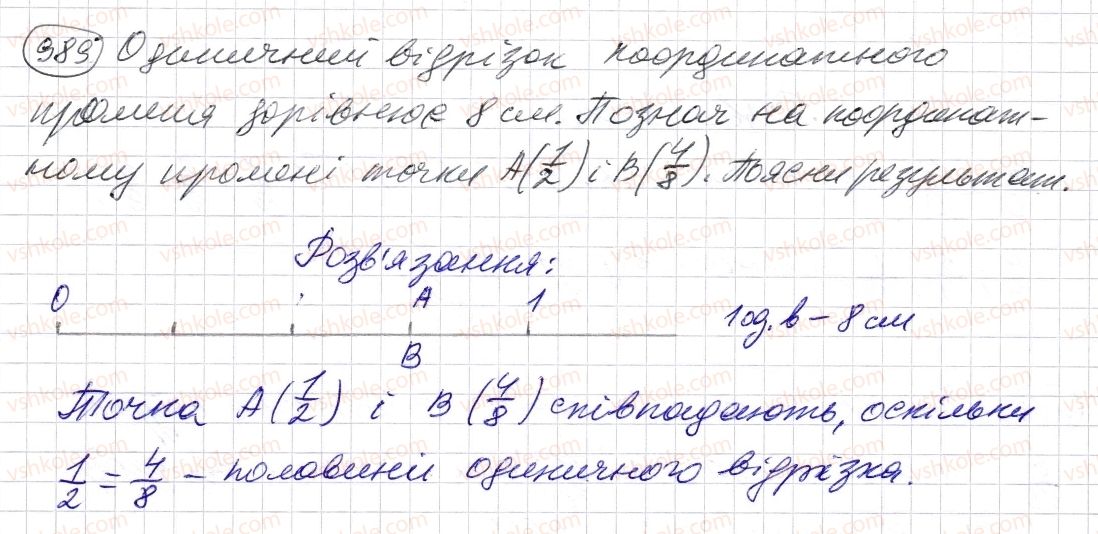 989 Одиничний відрізок координатного
променя дорівнює 8 см. Познач на координат-
ному промені точки A(1/2) і B(4/8). Поясни результат.
Розв'язання:
0 A 1 1 од. в – 8 см
B
Точка A (1/2) і B (4/8) співпадають, оскільки
1/2 = 4/8 – половині одиничного відрізка.